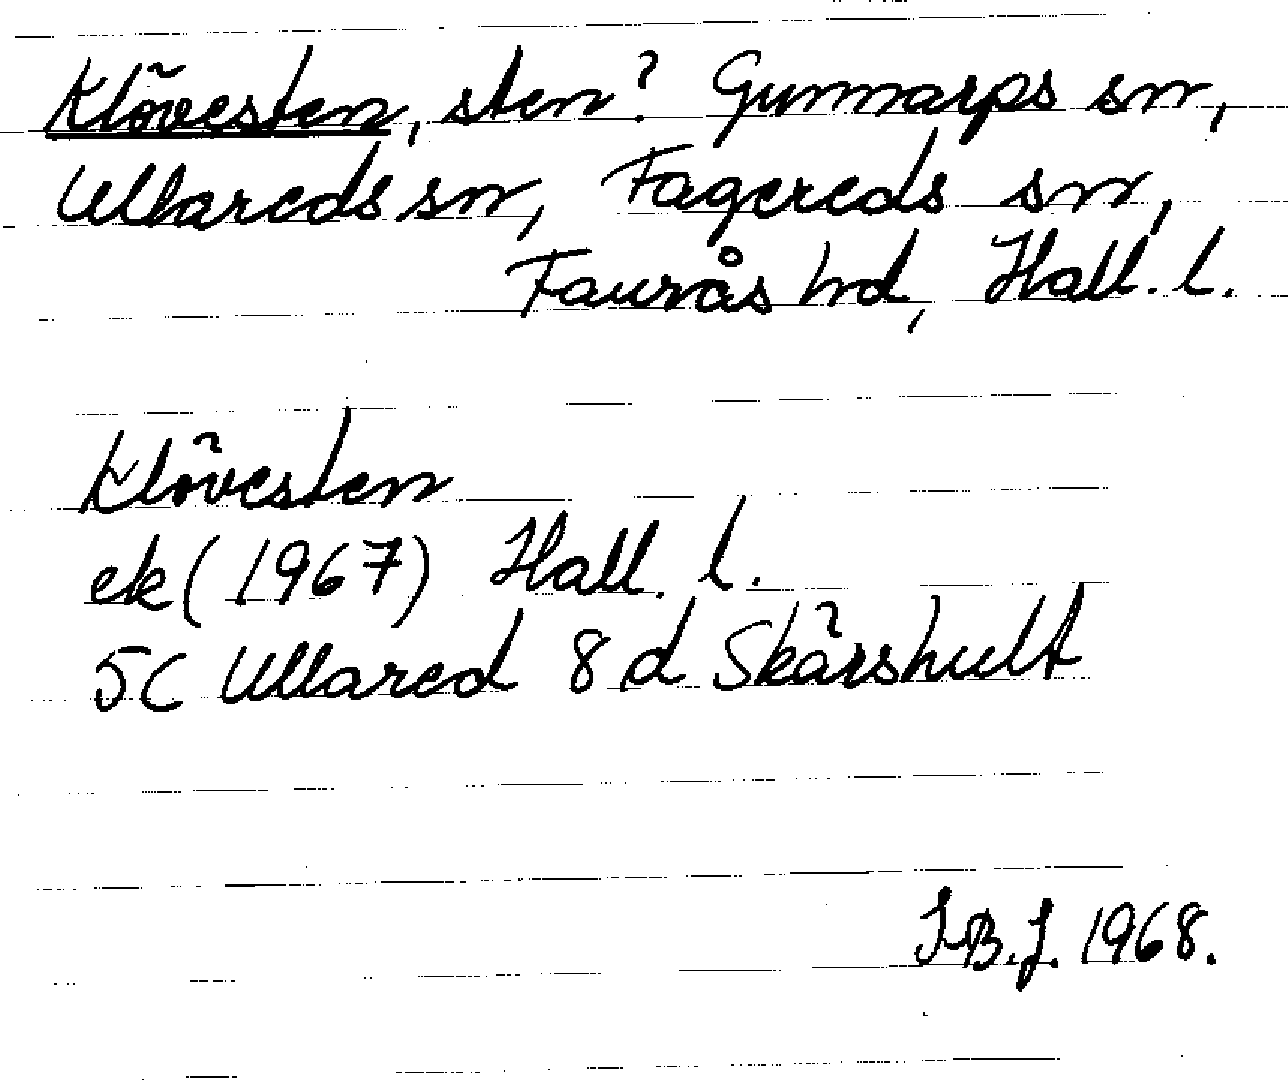 Klövesten, sten? Gunnarps sn,
Ullareds sn, Fagereds sn,
Faurås hd, Hall. l.
Klövesten
ek (1967) Hall. l.
5C Ullared 8d Skärshult
I-B.J. 1968.